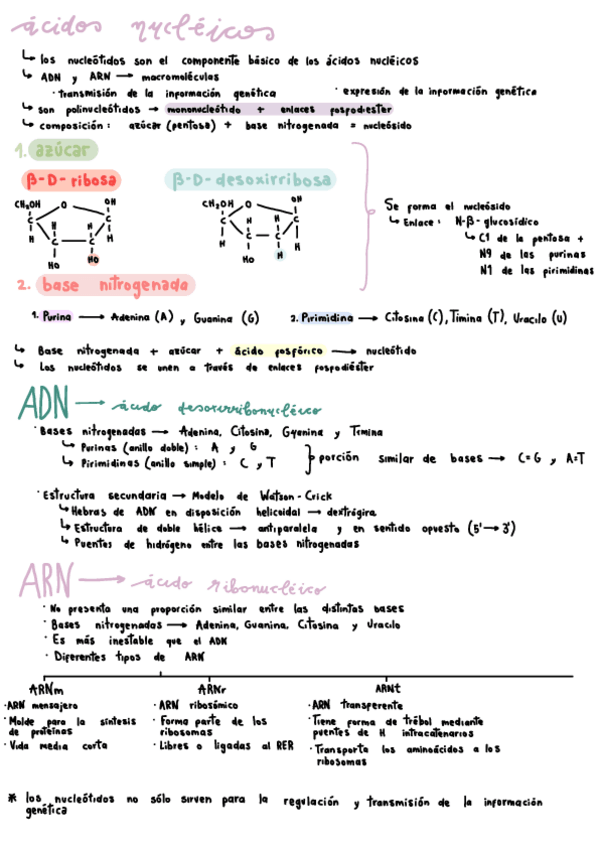 ácidos nucléicos
↳ los nucleótidos son el componente básico de los ácidos nucléicos
↳ ADN y ARN → macromoléculas
· transmisión de la información genética · expresión de la información genética
↳ son polinucleótidos → mononucleótido + enlaces fosfodiester
↳ composición: azúcar (pentosa) + base nitrogenada = nucleósido
1. azúcar
β-D-ribosa β-D-desoxirribosa
CH₂OH O OH
C C
H C C H
H H
HO HO
CH₂OH O OH
C C
H C C H
H H
HO H
Se forma el nucleósido
↳ Enlace: N-β-glucosídico
↳ C1 de la pentosa +
N9 de las purinas
N1 de las pirimidinas
2. base nitrogenada
1. Purina → Adenina (A) y Guanina (G) 2. Pirimidina → Citosina (C), Timina (T), Uracilo (U)
↳ Base nitrogenada + azúcar + ácido fosfórico → nucleótido
↳ Los nucleótidos se unen a través de enlaces fosfodiéster
ADN → ácido desoxirribonucléico
· Bases nitrogenadas → Adenina, Citosina, Guanina y Timina
↳ Purinas (anillo doble): A y G
↳ Pirimidinas (anillo simple): C y T
porción similar de bases → C=G y A=T
· Estructura secundaria → Modelo de Watson-Crick
↳ Hebras de ADN en disposición helicoidal → dextrógira
↳ Estructura de doble hélice → antiparalela y en sentido opuesto (5'→3')
↳ Puentes de hidrógeno entre las bases nitrogenadas
ARN → ácido ribonucléico
· No presenta una proporción similar entre las distintas bases
· Bases nitrogenadas → Adenina, Guanina, Citosina y Uracilo
· Es más inestable que el ADN
· Diferentes tipos de ARN
ARNm
· ARN mensajero
· Molde para la síntesis
de proteínas
· Vida media corta
ARNr
· ARN ribosómico
· Forma parte de los
ribosomas
· Libres o ligadas al RER
ARNt
· ARN transferente
· Tiene forma de trébol mediante
puentes de H intracatenarios
· Transporta los aminoácidos a los
ribosomas
* los nucleótidos no sólo sirven para la regulación y transmisión de la información
genética